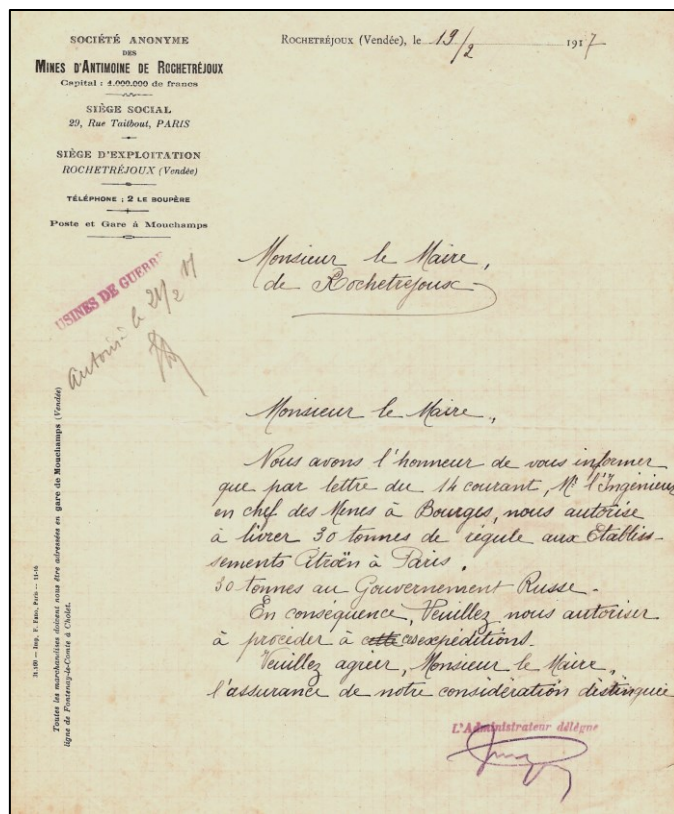 SOCIÉTÉ ANONYME
DES
MINES D'ANTIMOINE DE ROCHETRÉJOUX
Capital : 1.000.000 de francs
SIÈGE SOCIAL
29, Rue Taitbout, PARIS
SIÈGE D'EXPLOITATION
ROCHETRÉJOUX (Vendée)
TÉLÉPHONE : 2 LE BOUPÈRE
Poste et Gare à Mouchamps
ROCHETRÉJOUX (Vendée), le 19/2 1917
Monsieur le Maire,
de Rochetrejoux
USINES DE GUERRE
Autorisé le 21/2 17
Monsieur le Maire,
Nous avons l'honneur de vous informer
que par lettre du 14 courant, Mr l'Ingénieur
en chef des Mines à Bourges, nous autorise
à livrer 30 tonnes de régule aux Etablis-
sements Citroën à Paris.
30 tonnes au Gouvernement Russe.
En conséquence, Veuillez nous autoriser
à procéder à ces expéditions.
Veuillez agréer, Monsieur le Maire,
l'assurance de notre considération distinguée
L'Administrateur délégué
Toutes les marchandises doivent nous être adressées en gare de Mouchamps (Vendée)
ligne de Fontenay-le-Comte à Cholet.